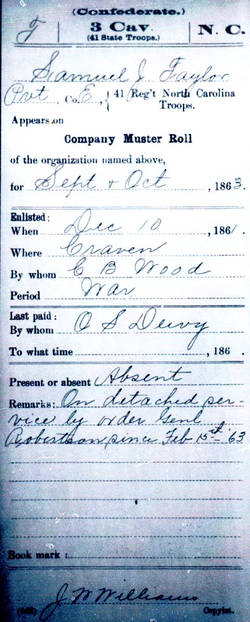 (Confederate.)
T | 3 Cav. | N. C.
(41 State Troops.)
Samuel J. Taylor
Pvt, Co. E, 41 Reg't North Carolina Troops.
Appears on
Company Muster Roll
of the organization named above,
for Sept & Oct, 1863.
Enlisted:
When Dec 10, 1861.
Where Craven
By whom C B Wood
Period War
Last paid:
By whom O S Dewy
To what time, 186 .
Present or absent Absent
Remarks: On detached ser-
vice by order Genl
Robertson since Feb 15th '63
Book mark:
J W Williams
Copyist.